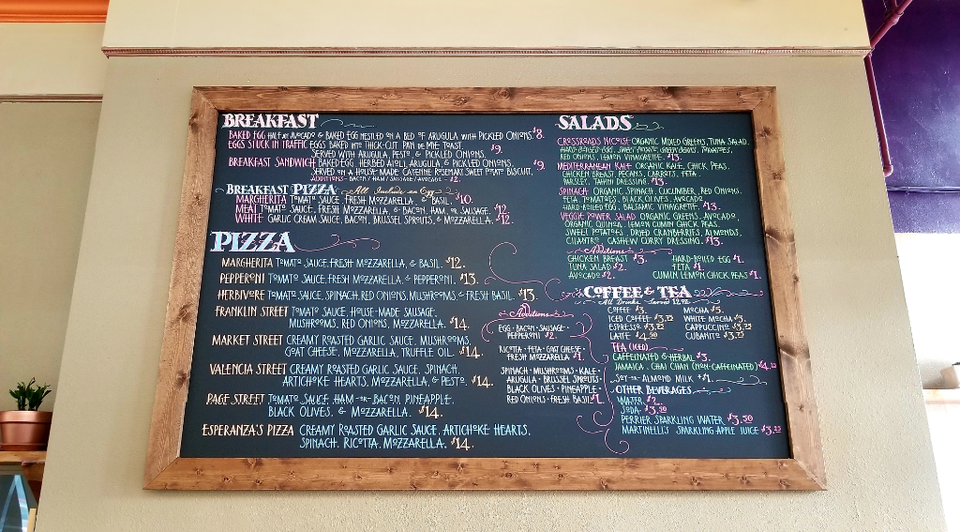 BREAKFAST
BAKED EGG HALF AN AVOCADO & BAKED EGG NESTLED ON A BED OF ARUGULA WITH PICKLED ONIONS $8.
EGGS STUCK IN TRAFFIC EGGS BAKED INTO THICK-CUT PAIN DE MIE TOAST
SERVED WITH ARUGULA, PESTO, & PICKLED ONIONS. $9.
BREAKFAST SANDWICH BAKED EGG, HERBED AIOLI, ARUGULA & PICKLED ONIONS,
SERVED ON A HOUSE-MADE CAYENNE ROSEMARY SWEET POTATO BISCUIT. $9.
ADDITIONS - BACON / HAM / SAUSAGE / AVOCADO - $2.
BREAKFAST PIZZA All Include an Egg
MARGHERITA TOMATO SAUCE, FRESH MOZZARELLA, & BASIL. $10.
MEAT TOMATO SAUCE, FRESH MOZZARELLA, & BACON, HAM, OR SAUSAGE. $12.
WHITE GARLIC CREAM SAUCE, BACON, BRUSSEL SPROUTS, & MOZZARELLA. $12.
PIZZA
MARGHERITA TOMATO SAUCE, FRESH MOZZARELLA, & BASIL. $12.
PEPPERONI TOMATO SAUCE, FRESH MOZZARELLA, & PEPPERONI. $13.
HERBIVORE TOMATO SAUCE, SPINACH, RED ONIONS, MUSHROOMS, & FRESH BASIL. $13.
FRANKLIN STREET TOMATO SAUCE, HOUSE-MADE SAUSAGE,
MUSHROOMS, RED ONIONS, MOZZARELLA. $14.
MARKET STREET CREAMY ROASTED GARLIC SAUCE, MUSHROOMS,
GOAT CHEESE, MOZZARELLA, TRUFFLE OIL. $14.
VALENCIA STREET CREAMY ROASTED GARLIC SAUCE, SPINACH,
ARTICHOKE HEARTS, MOZZARELLA, & PESTO. $14.
PAGE STREET TOMATO SAUCE, HAM -OR- BACON, PINEAPPLE,
BLACK OLIVES, & MOZZARELLA. $14.
ESPERANZA'S PIZZA CREAMY ROASTED GARLIC SAUCE, ARTICHOKE HEARTS,
SPINACH, RICOTTA, MOZZARELLA. $14.
Additions
EGG · BACON · SAUSAGE ·
PEPPERONI $2.
RICOTTA · FETA · GOAT CHEESE ·
FRESH MOZZARELLA $1.
SPINACH · MUSHROOMS · KALE ·
ARUGULA · BRUSSEL SPROUTS ·
BLACK OLIVES · PINEAPPLE ·
RED ONIONS · FRESH BASIL $1.
SALADS
CROSSROADS NICOISE ORGANIC MIXED GREENS, TUNA SALAD,
HARD-BOILED EGG, GREEN BEANS, TOMATOES,
RED ONIONS, LEMON VINAIGRETTE. $13.
MEDITERRANEAN KALE ORGANIC KALE, CHICK PEAS,
CHICKEN BREAST, PECANS, CARROTS, FETA,
PARSLEY, TAHINI DRESSING. $13.
SPINACH ORGANIC SPINACH, CUCUMBER, RED ONIONS,
FETA, TOMATOES, BLACK OLIVES, AVOCADO,
HARD-BOILED EGG, BALSAMIC VINAIGRETTE. $13.
VEGGIE POWER SALAD ORGANIC GREENS, AVOCADO,
ORGANIC QUINOA, LEMON CUMIN CHICK PEAS,
SWEET POTATOES, DRIED CRANBERRIES, ALMONDS,
CILANTRO, CASHEW CURRY DRESSING. $13.
Additions
CHICKEN BREAST $3. HARD-BOILED EGG $1.
TUNA SALAD $2. FETA $1.
AVOCADO $2. CUMIN LEMON CHICK PEAS $1.
COFFEE & TEA
All Drinks Served 12 oz
COFFEE $3. MOCHA $5.
ICED COFFEE WHITE MOCHA
ESPRESSO CAPPUCCINO
LATTE CUBANITO
TEA (ICED)
CAFFEINATED & HERBAL $3.
JAMAICA, CHAI CHAN (NON-CAFFEINATED)
SOY -OR- ALMOND MILK +$1.
OTHER BEVERAGES
WATER $2.
SODA $3.50
PERRIER SPARKLING WATER $3.50
MARTINELLI'S SPARKLING APPLE JUICE